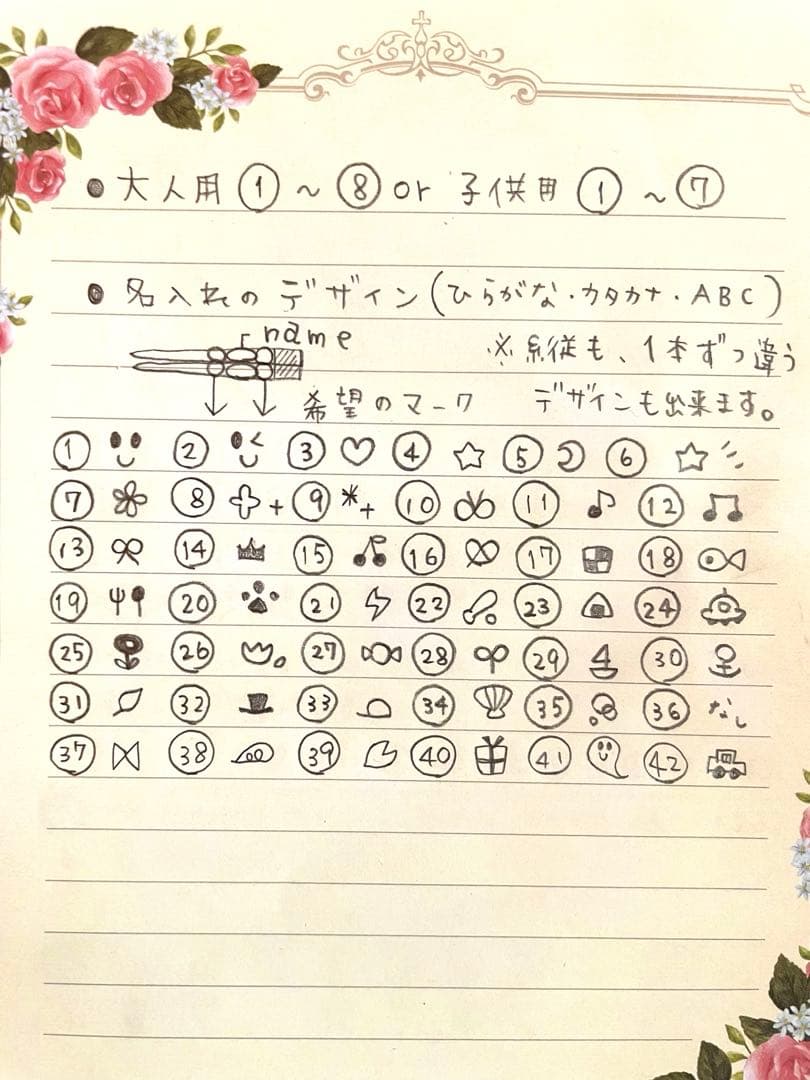 ●大人用①~⑧or 子供用①~⑦
●名入れのデザイン(ひらがな・カタカナ・ABC)
name
※糸従も、1本ずつ違う
希望のマーク デザインも出来ます。
① ② ③ ♡ ④ ☆ ⑤ ⑥ ☆
⑦ ⑧ + ⑨ *+ ⑩ ⑪ ♪ ⑫ ♫
⑬ ⑭ ⑮ ⑯ ⑰ ⑱
⑲ ⑳ ㉑ ㉒ ㉓ ㉔
㉕ ㉖ ㉗ ㉘ ㉙ ㉚
㉛ ㉜ ㉝ ㉞ ㉟ ㊱ なし
㊲ ㊳ ㊴ ㊵ ㊶ ㊷